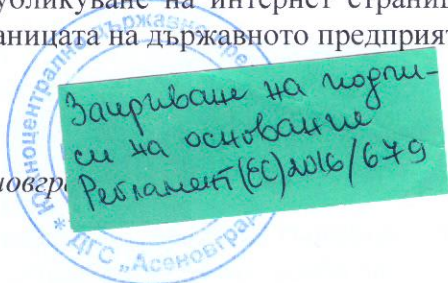 убликуване на интернет страниц
раницата на държавното предприят
Южноцентрално държавно
Заприваще на подпи-
си на основание
Регламент (ЕС) 2016/679
новгра
* ДГС „Асеновград